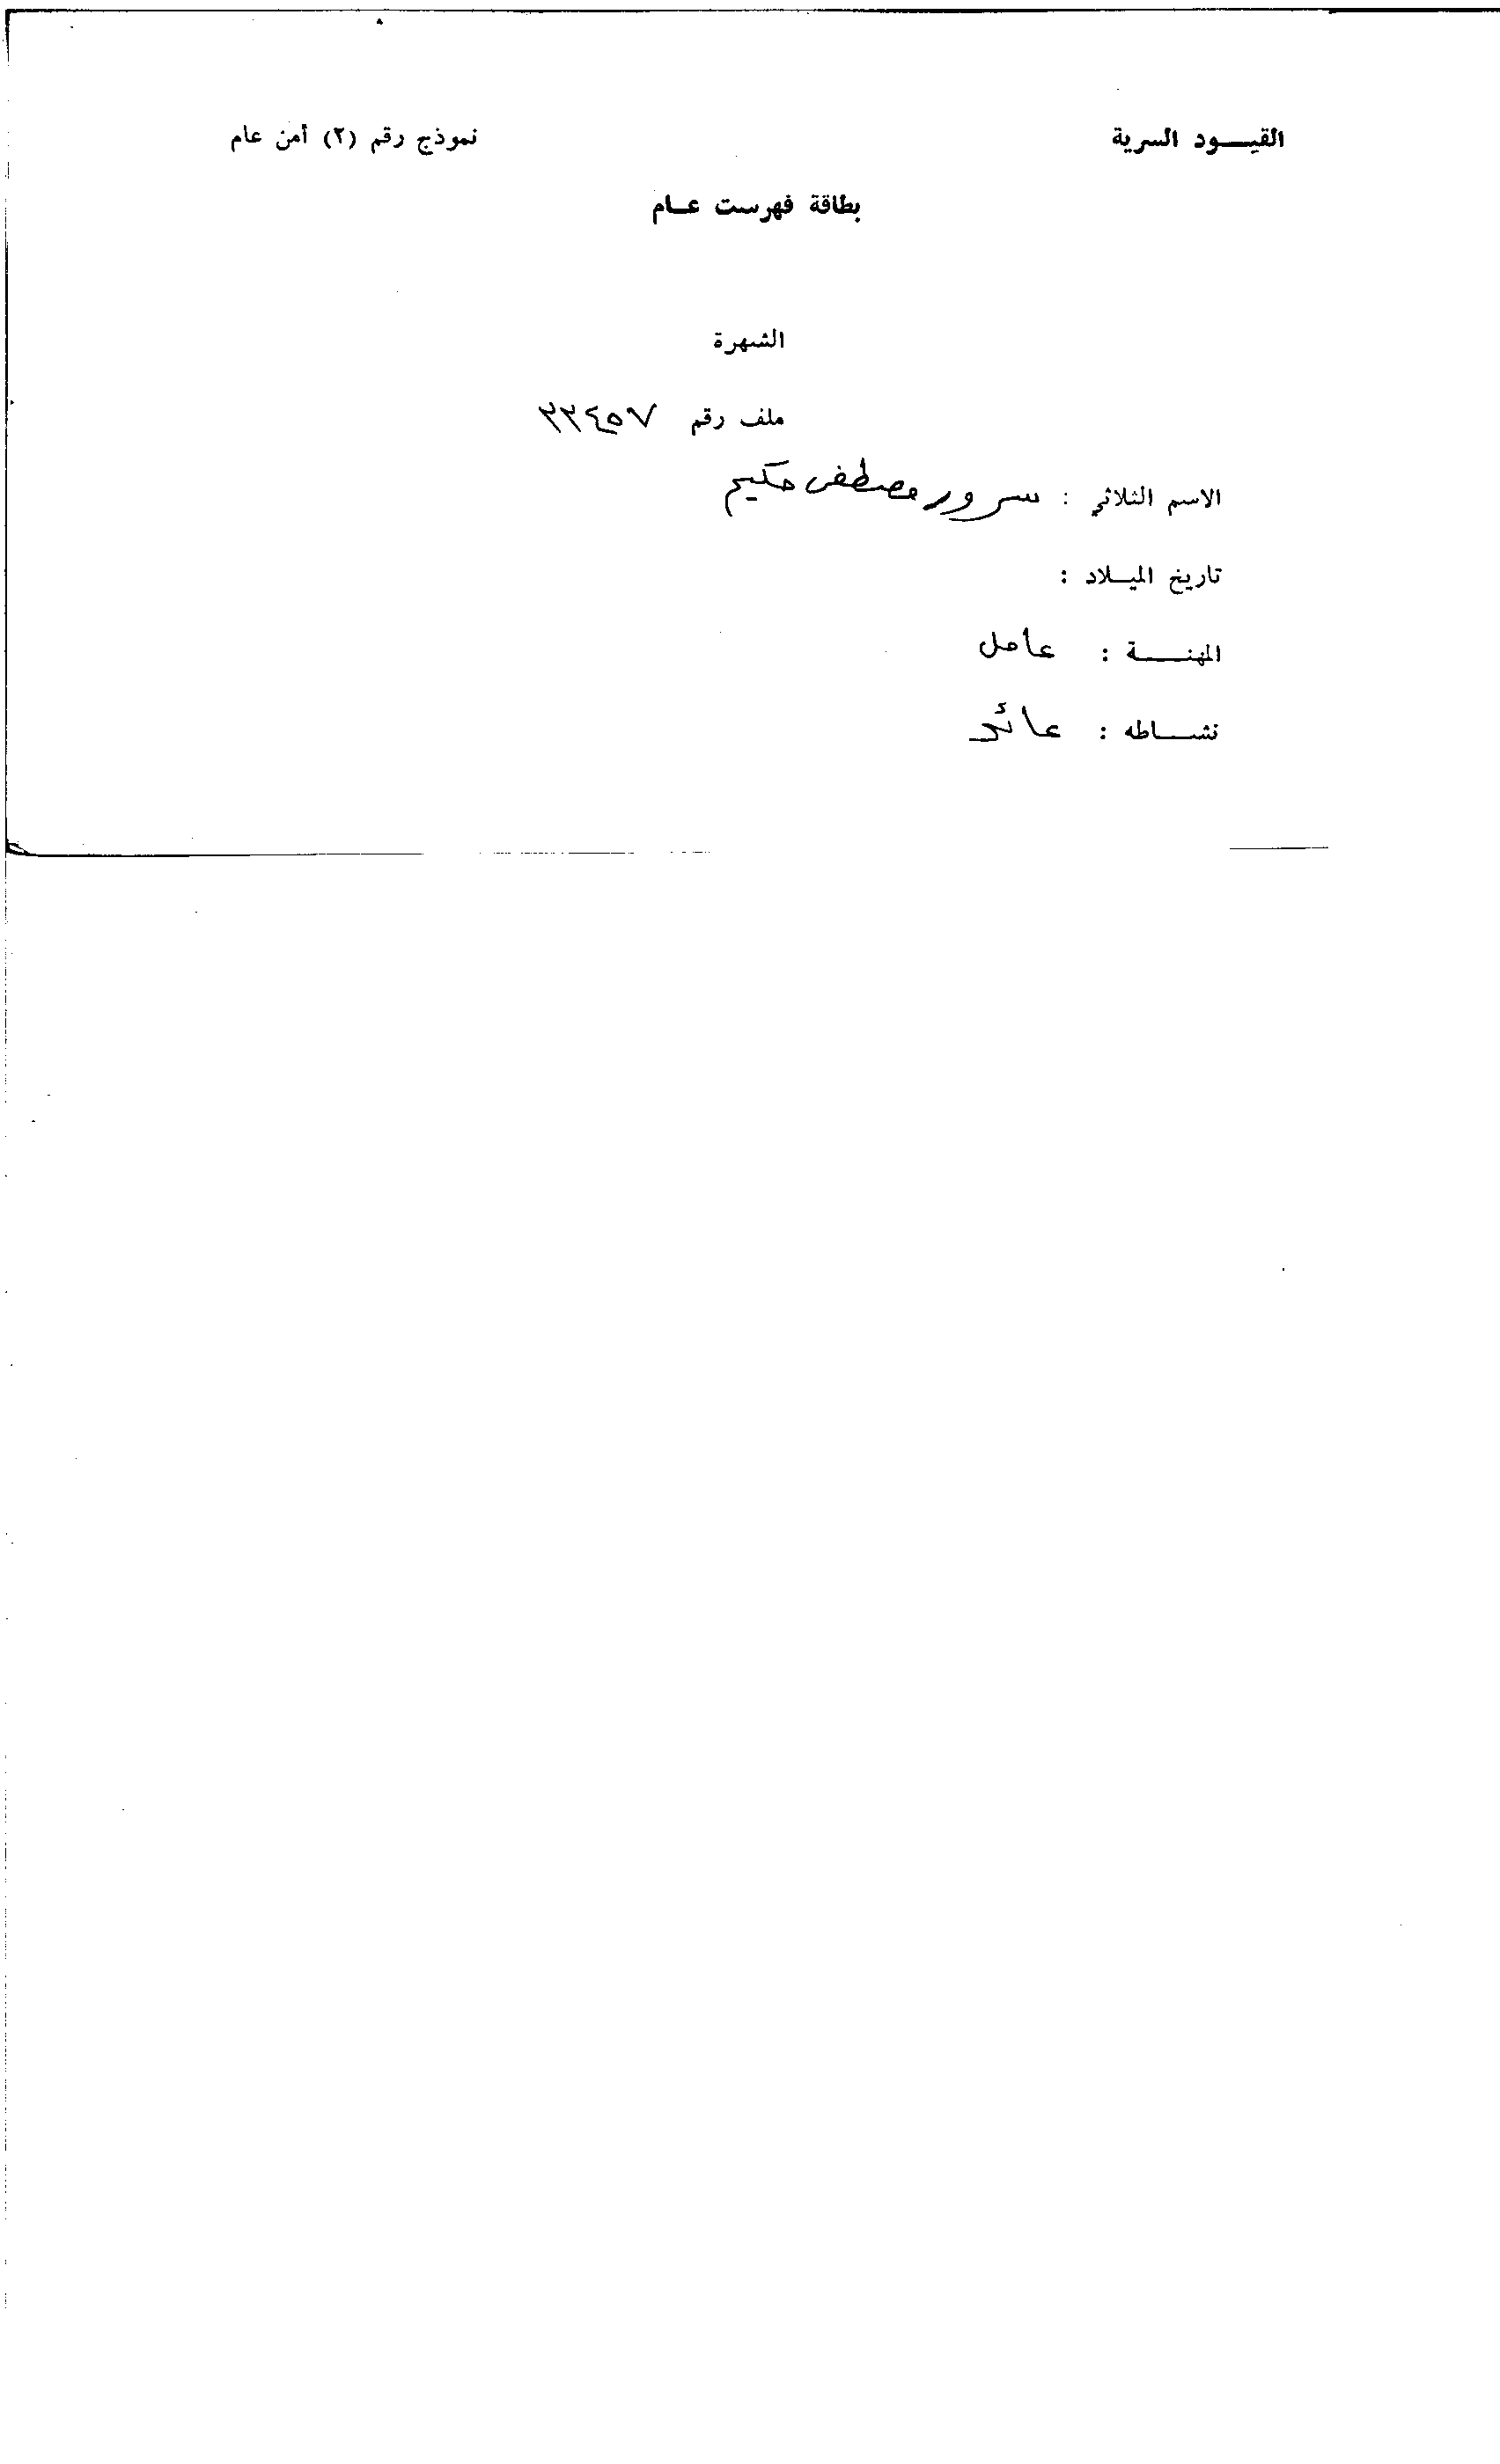 القيـــود السرية
نموذج رقم (٢) أمن عام
بطاقة فهرست عـام
الشهرة
ملف رقم ٢٢٤٥٧
الاسم الثلاثي : سرور مصطفى حكيم
تاريخ الميـلاد :
المهنــــة : عامل
نشــاطه : عائد